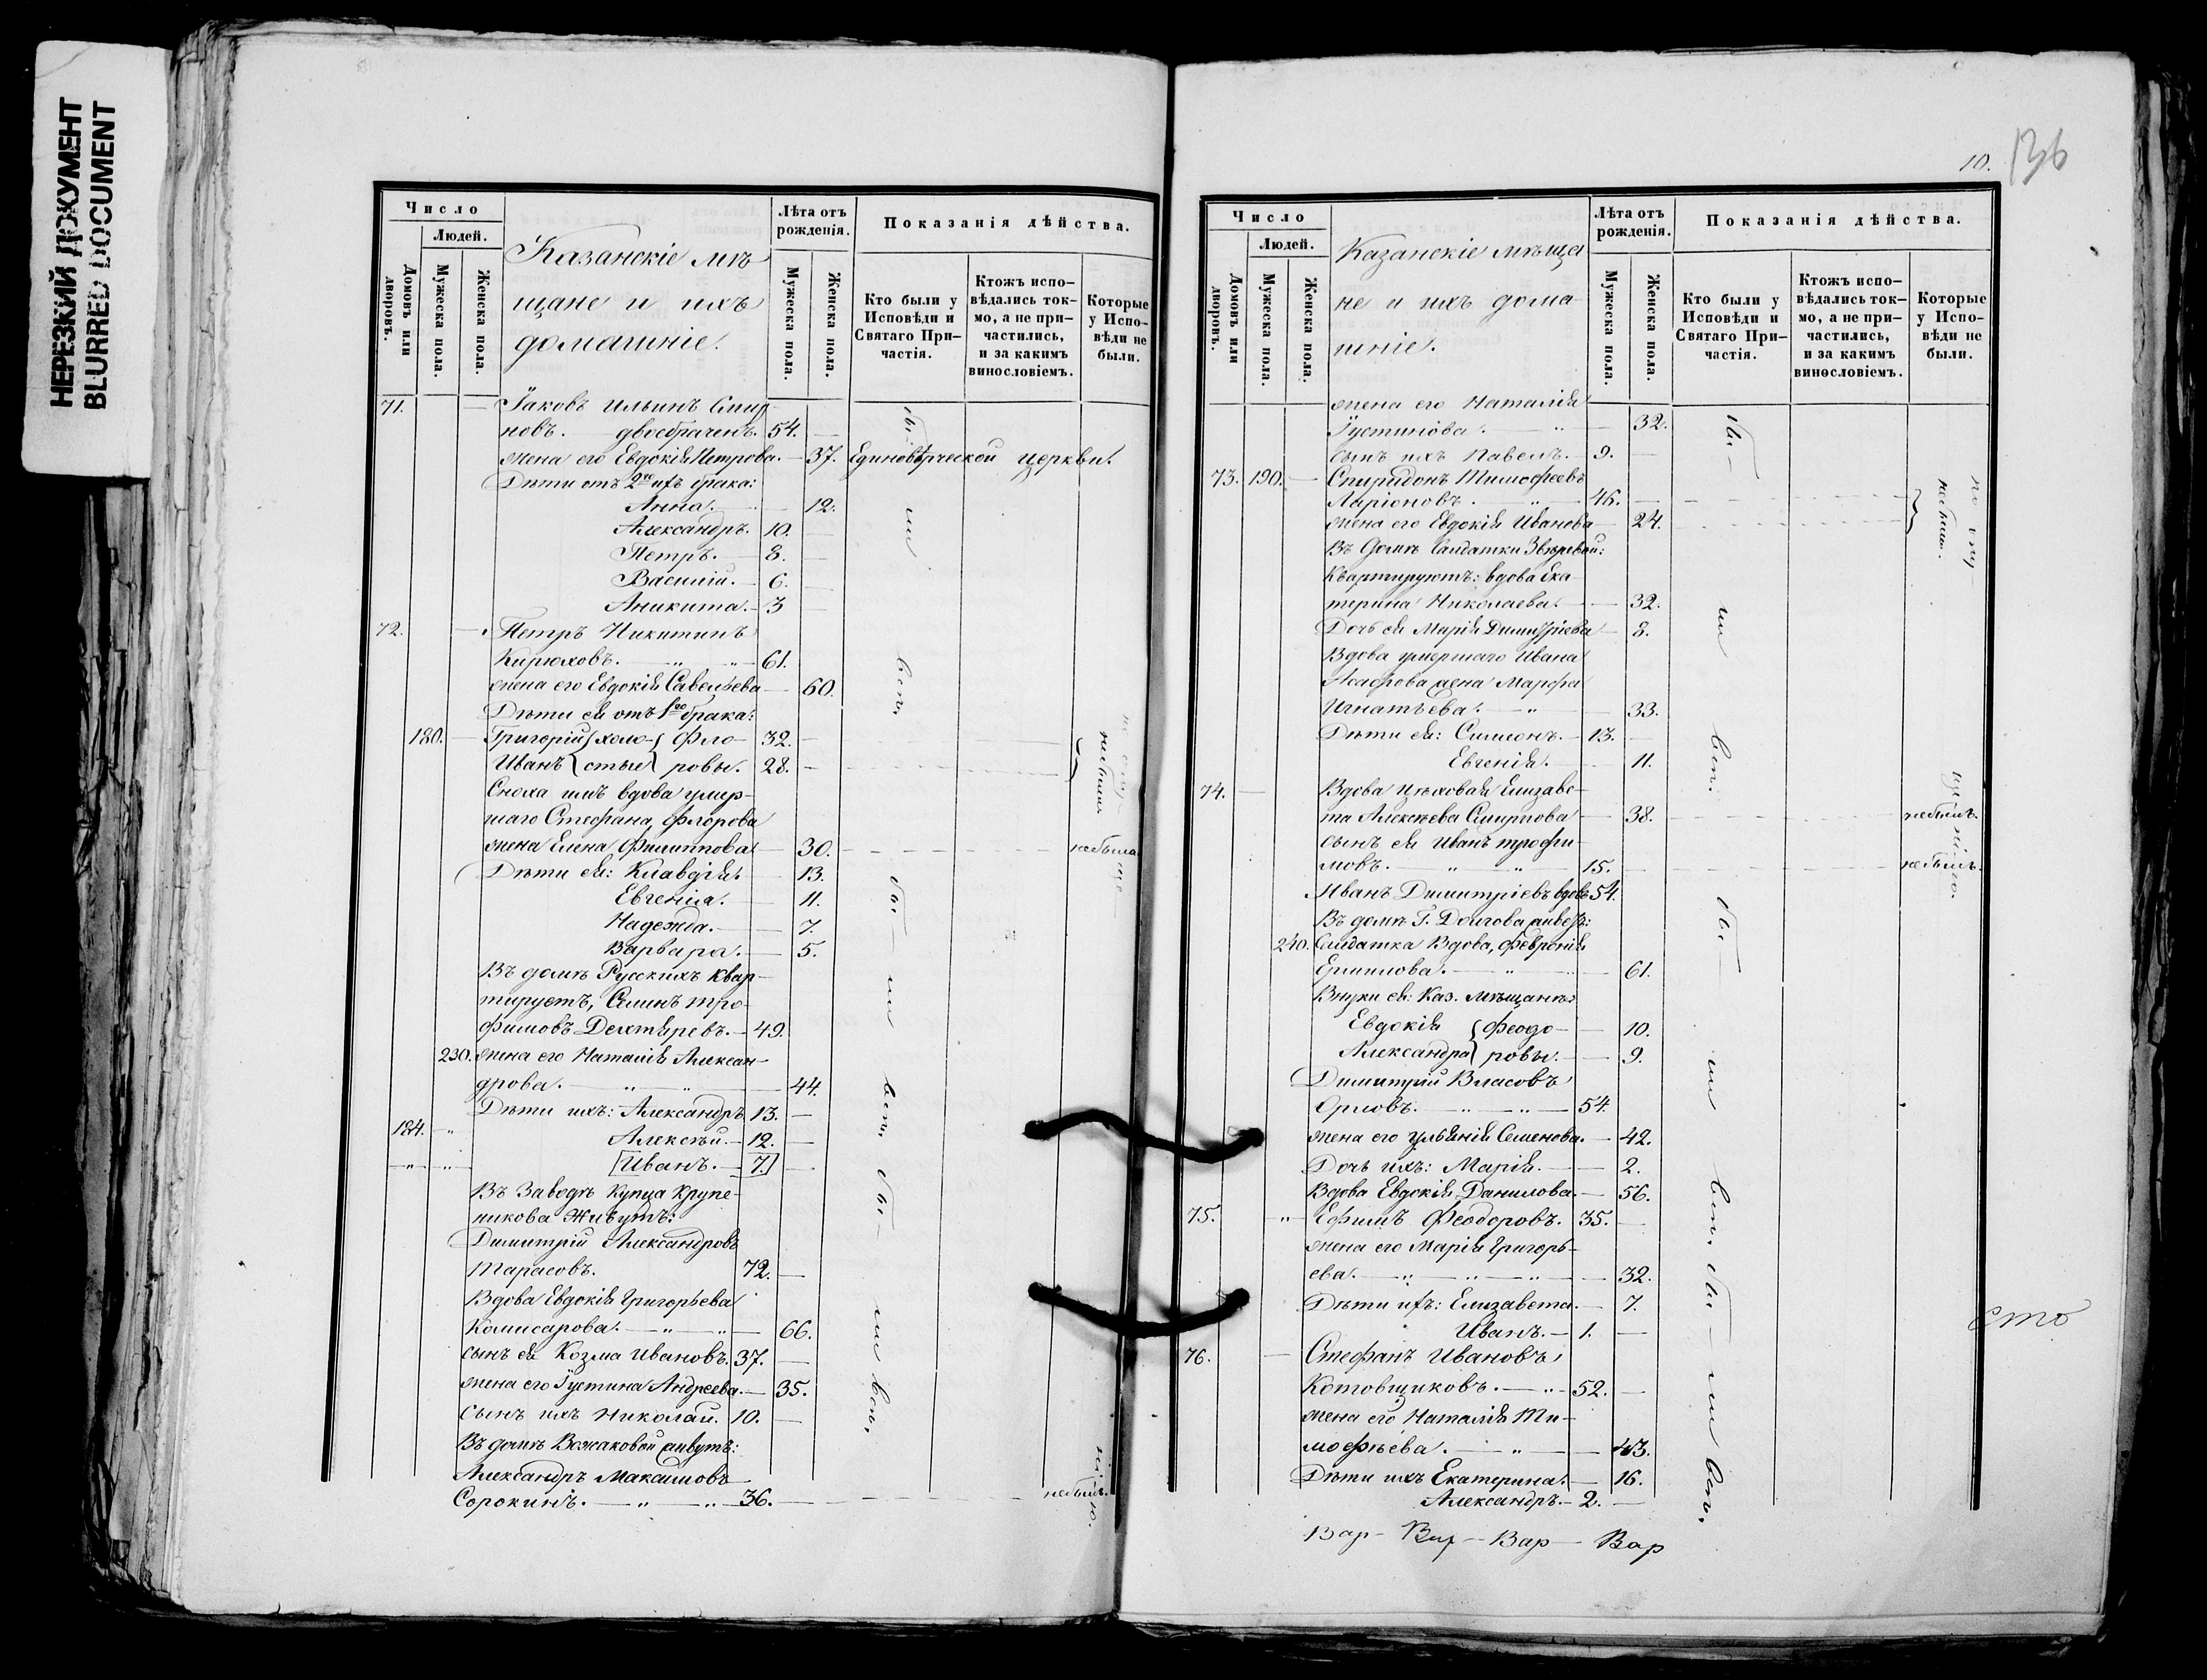 НЕРЕЗКИЙ ДОКУМЕНТ
BLURRED DOCUMENT
Число
Людей.
Домовъ или дворовъ.
Мужеска пола.
Женска пола.
Казанскіе мѣ
щане и ихъ
домашніе.
Лѣта отъ рожденія.
Мужеска пола.
Женска пола.
Показанія дѣйства.
Кто были у Исповѣди и Святаго При-частія.
Ктожъ испо-вѣдались ток-мо, а не при-частились, и за какимъ винословіемъ.
Которые у Испо-вѣди не были.
71. Іаковъ Ильинъ Смир
новъ. двоебраченъ. 54.
жена его Евдокія Петрова. 37. Единовѣрческой церкви.
Дѣти отъ 2го ихъ брака:
Анна. 12.
Александръ. 10.
Петръ. 8.
Василій. 6.
Аникита. 3
72. Петръ Никитинъ
Кирюховъ. 61.
жена его Евдокія Савельева 60.
Дѣти ея отъ 1го брака:
180. Григорій холо- Фло- 32.
Иванъ стые ровы. 28. небыли
Сноха имъ вдова умер-
шаго Стефана Флорова
жена Елена Филиппова 30. небыла
Дѣти ея: Клавдія. 13.
Евгенія. 11.
Надежда. 7.
Варвара. 5.
Въ домѣ Русскихъ квар-
тируетъ, Симинъ Тро-
фимовъ Дехтяревъ. 49.
230. жена его Наталія Алексан-
дрова. 44.
Дѣти ихъ: Александръ 13.
184. Алексѣй. 12.
[Иванъ. 7.]
Въ Заводѣ Купца Крупе-
никова Живутъ:
Димитрій Александровъ
Тарасовъ. 72.
Вдова Евдокія Григорьева
Комисарова. 66.
сынъ ея Козма Ивановъ. 37.
жена его Іустина Андреева. 35.
Сынъ ихъ Николай. 10.
Въ домѣ Вожаковой живутъ:
Александръ Максимовъ
Сорокинъ. 36. небылъ.
бы-
ли
вст.
бы-
ли
вст.
бы-
ли
вст.
10.
136
Число
Людей.
Домовъ или дворовъ.
Мужеска пола.
Женска пола.
Казанскіе мѣща
не и ихъ дома
шніе.
Лѣта отъ рожденія.
Мужеска пола.
Женска пола.
Показанія дѣйства.
Кто были у Исповѣди и Святаго При-частія.
Ктожъ испо-вѣдались ток-мо, а не при-частились, и за какимъ винословіемъ.
Которые у Испо-вѣди не были.
жена его Наталія
Іустинова. 32.
сынъ ихъ Павелъ. 9.
73. 190. Спиридонъ Тимофеевъ
Ларіоновъ. 46.
жена его Евдокія Иванова 24. небыли.
Въ Домѣ Салдатки Звѣревой:
Квартируютъ: вдова Ека-
терина Николаева. 32.
Дочь ея Марія Димитріева 8.
Вдова умершаго Ивана
жена Марфа
Игнатьева. 33.
Дѣти ея: Симеонъ. 13.
Евгенія. 11.
74. Вдова цѣховая Елизаве-
та Алексѣева Смирнова 38. небыла.
сынъ ея Иванъ Трофи-
мовъ. 15. небылъ.
Иванъ Димитріевъ вдовъ 54.
Въ домѣ Г. Долгова живетъ:
240. Салдатка Вдова, Февронія
Ермилова. 61.
Внуки ея: Каз. Мѣщанки
Евдокія Феодо- 10.
Александра ровы. 9.
Димитрій Власовъ
Орловъ. 54.
жена его Ульянія Семенова. 42.
Дочь ихъ: Марія. 2.
Вдова Евдокія Данилова. 56.
75. Ефимъ Феодоровъ. 35.
жена его Марія Григорь-
ева. 32.
Дѣти ихъ: Елизавета. 7.
Иванъ. 1.
76. Стефанъ Ивановъ
Котовщиковъ. 52.
жена его Наталія Ти-
мофѣева. 43.
Дѣти ихъ Екатерина. 16.
Александръ. 2.
Вар- Вар- Вар- Вар
бы-
ли
вст.
бы-
ли
вст.
бы-
ли
вст.
по опу-
ще-
нію.